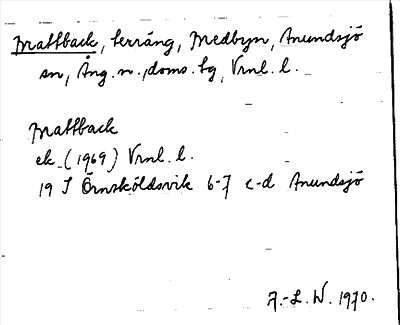 Mattback, terräng, Medbyn, Anundsjö
sn, Ång. n., doms. tg, Vrnl. l.
Mattback
ek. (1969) Vrnl. l.
19 I Örnsköldsvik 6-7 c-d Anundsjö
A.-L. W. 1970.